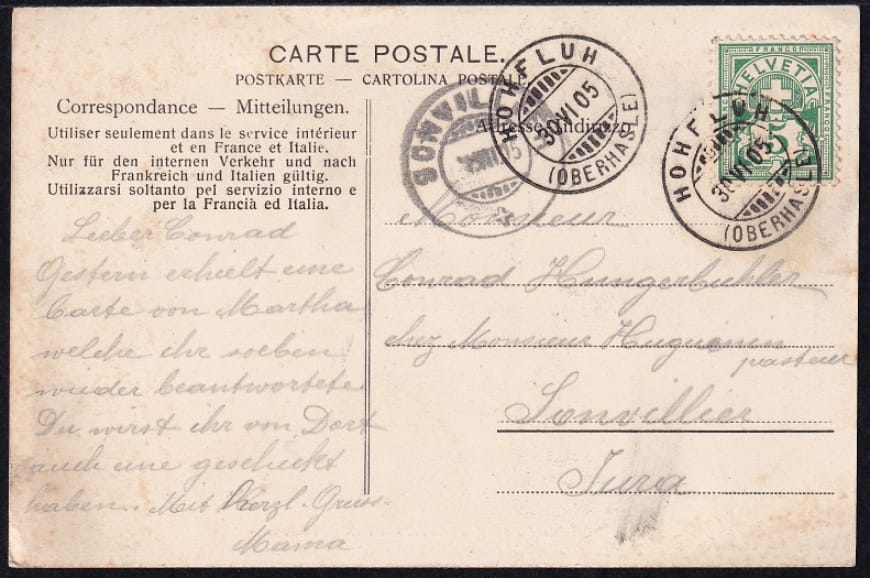 CARTE POSTALE.
POSTKARTE — CARTOLINA POSTALE.
Correspondance — Mitteilungen.
Utiliser seulement dans le service intérieur
et en France et Italie.
Nur für den internen Verkehr und nach
Frankreich und Italien gültig.
Utilizzarsi soltanto pel servizio interno e
per la Francia ed Italia.
Lieber Conrad
Gestern erhielt eine
Carte von Martha
welche ihr soeben
wieder beantwortete.
Du wirst ihr von Dort
auch eine geschickt
haben. Mit Herzl. Gruss.
Mama
Adresse Indirizzo
Monsieur
Conrad Hungerbuhler
chez Monsieur Huguenin
pasteur
Sonvillier
Jura
HOHFLUH
30 VI 05
(OBERHASLE)
SONVIL
05
FRANCO
HELVETIA
5
HOHFLUH
30 VI 05
(OBERHASLE)